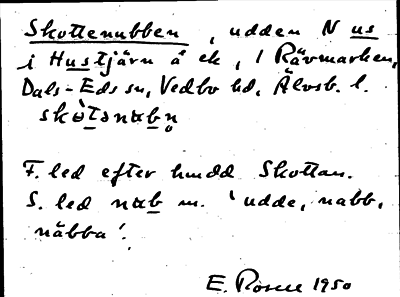 Skottenubben, udden N us
i Hustjärn å ek, / Rävmarken,
Dals-Eds sn, Vedbo hd, Älvsb. l.
skòtənabn̥
F. led efter hmdd Skottan.
S. led nab m. 'udde, nabb,
näbba'.
1950